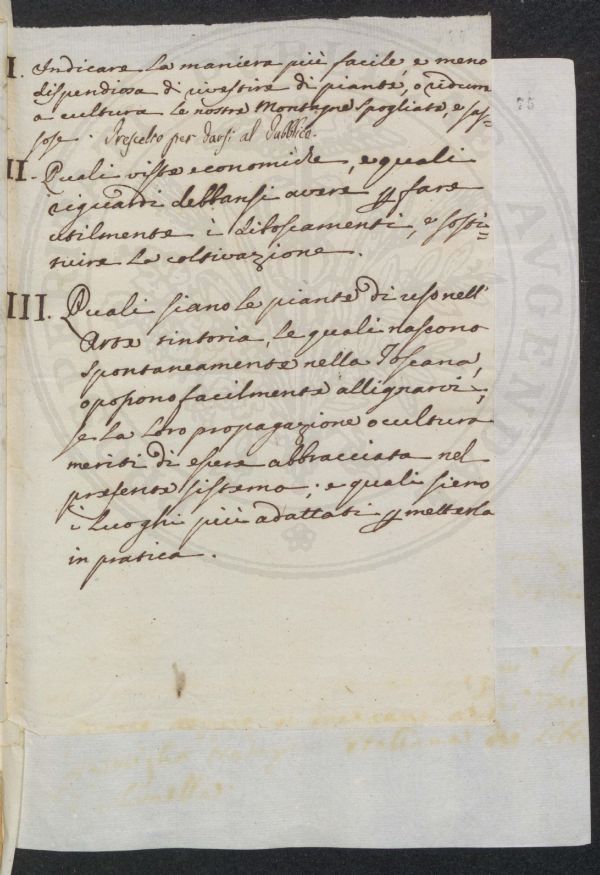 I. Indicare la maniera più facile e meno
dispendiosa di rivestire di piante, o ridurre
a cultura le nostre Montagne spogliate, e sas=
sose. Prescelto per darsi al Pubblico.
II. Quali viste economiche, e quali
riguardi debbansi avere p fare
utilmente i diboscamenti, e sosti=
tuire la coltivazione.
III. Quali siano le piante di uso nell'
Arte tintoria, le quali nascono
spontaneamente nella Toscana,
o possono facilmente allignarvi;
se la loro propagazione o cultura
meriti di essere abbracciata nel
presente sistema; e quali sieno
i luoghi più adattati p metterla
in pratica.
75